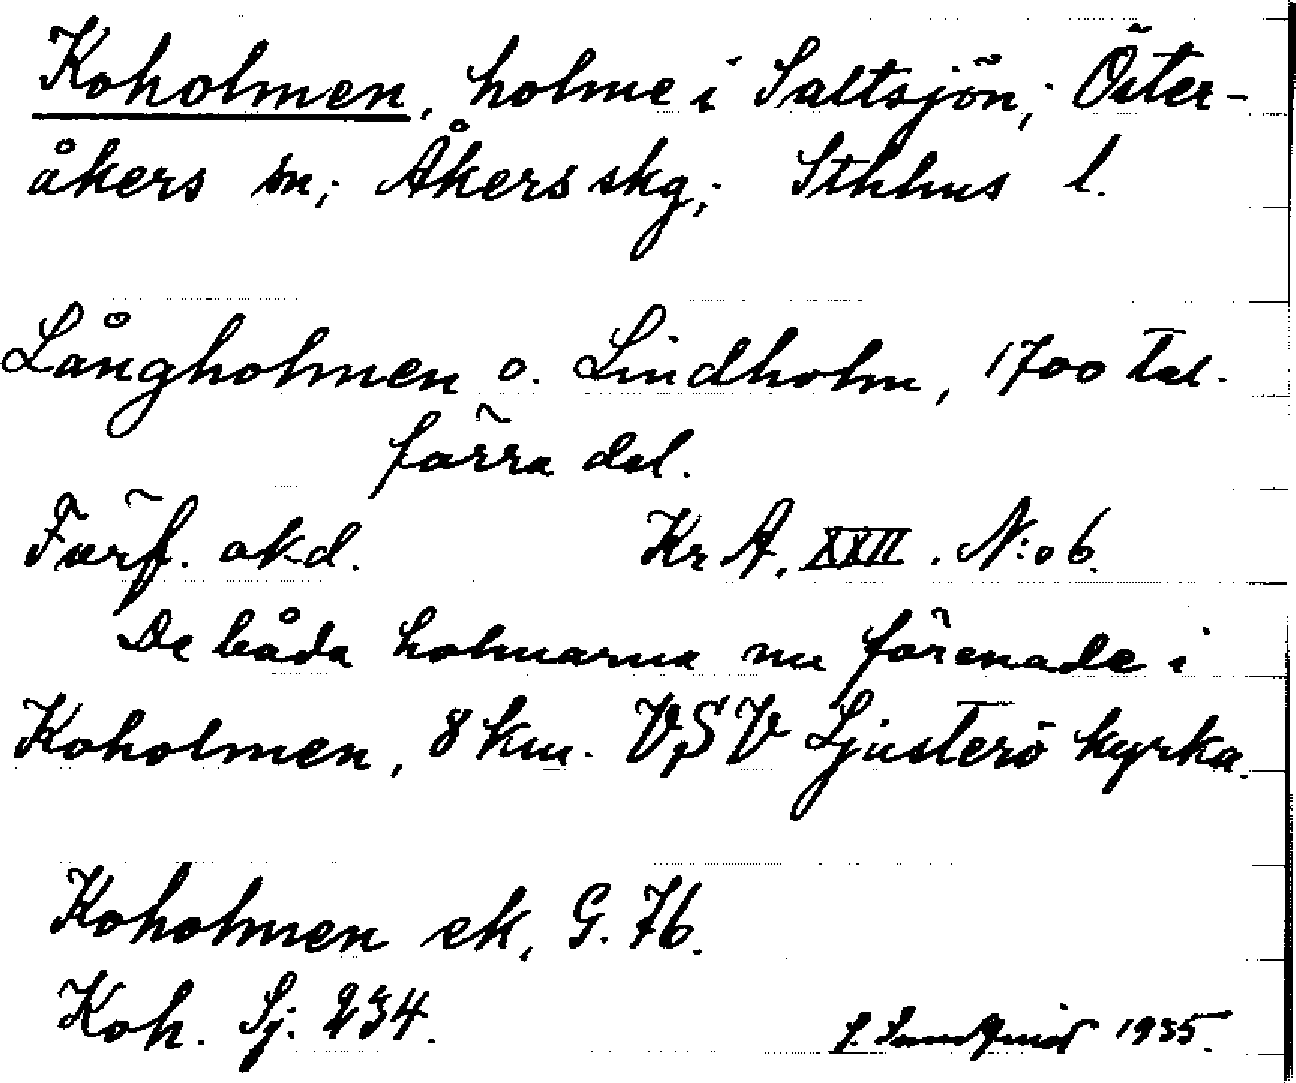 Koholmen, holme i Saltsjön; Öster-
åkers sn; Åkers skg; Sthlms l.
Långholmen o. Lindholm, 1700 tal.
förra del.
Förf. okd. Kr A. XXII. N:o 6.
De båda holmarna nu förenade i
Koholmen, 8 km. VSV Ljusterö kyrka.
Koholmen ek, G. 76.
Koh. Sj. 234.
1935.